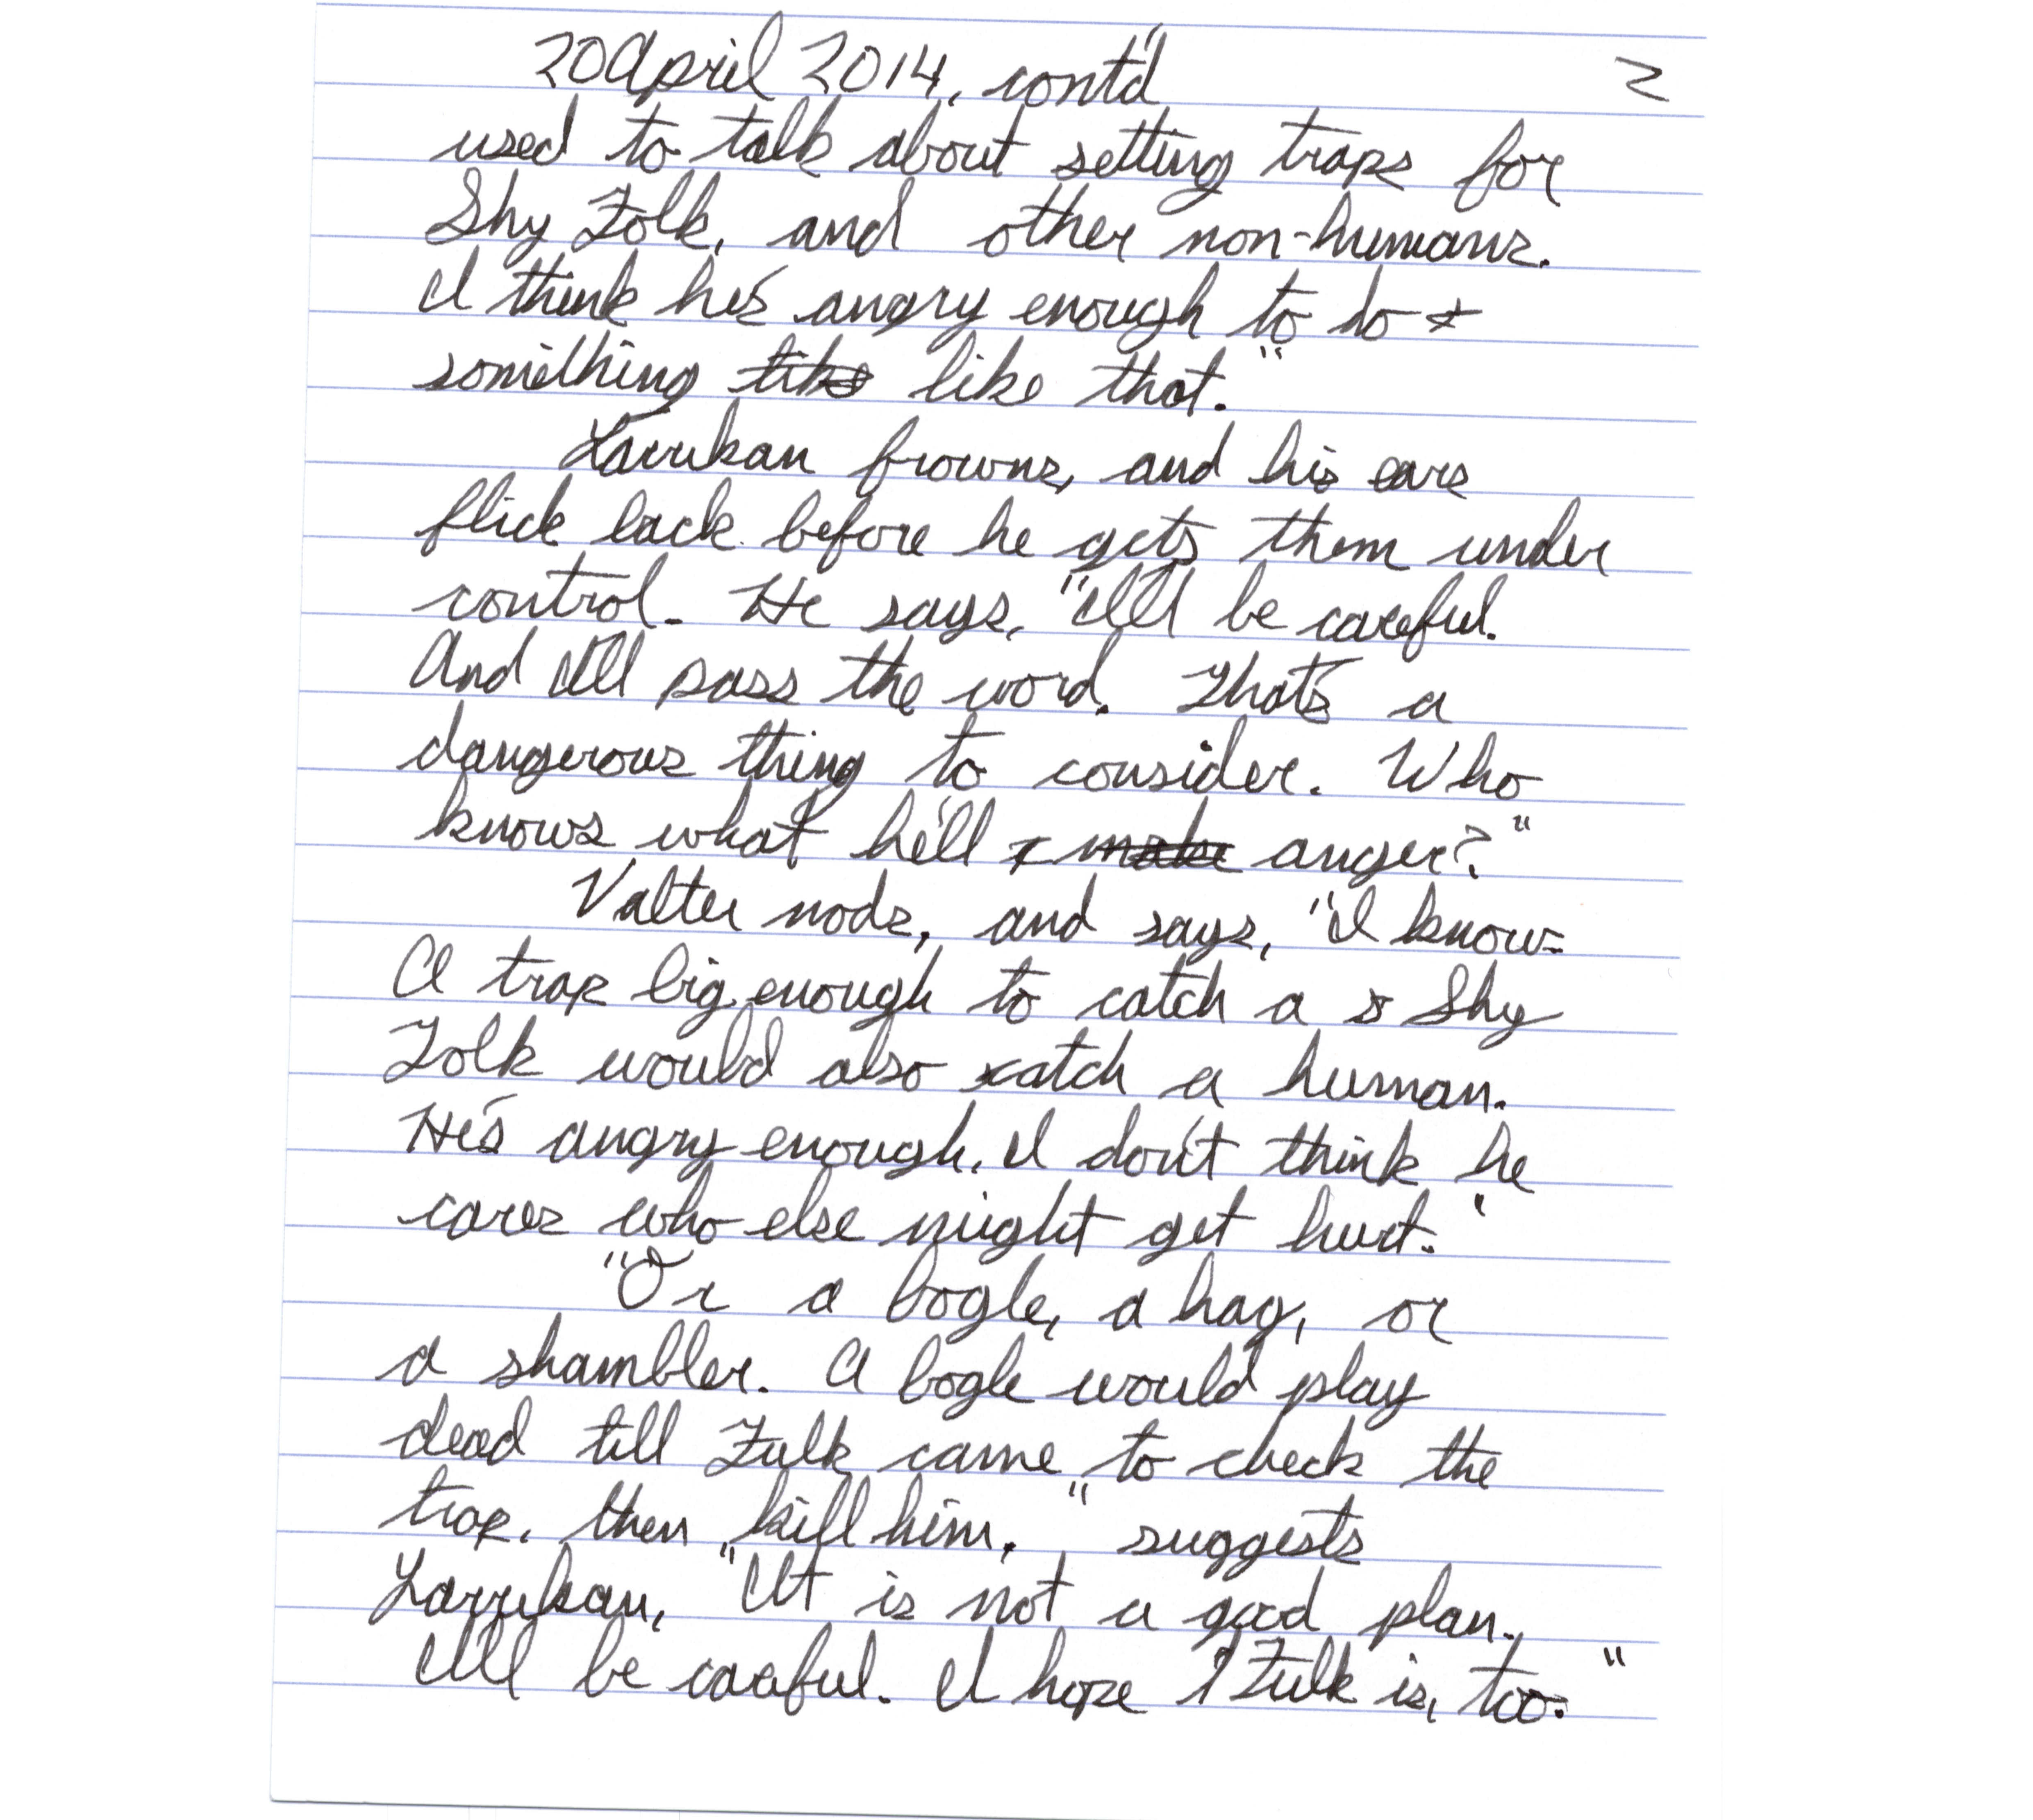 20 April 2014, cont'd 2
used to talk about setting traps for
Shy Folk, and other non-humans.
I think he's angry enough to do
something like like that."
Larrukan frowns, and his ears
flick back before he gets them under
control. He says, "I'll be careful.
And I'll pass the word. That's a
dangerous thing to consider. Who
knows what he'll make anger?"
Valter nods, and says, "I know.
A trap big enough to catch a s Shy
Folk would also catch a human.
He's angry enough, I don't think he
cares who else might get hurt."
"Or a bogle, a hag, or
a shambler. A bogle would play
dead till Fulk came to check the
trap, then kill him," suggests
Larrukan, "It is not a good plan.
I'll be careful. I hope Fulk is, too."